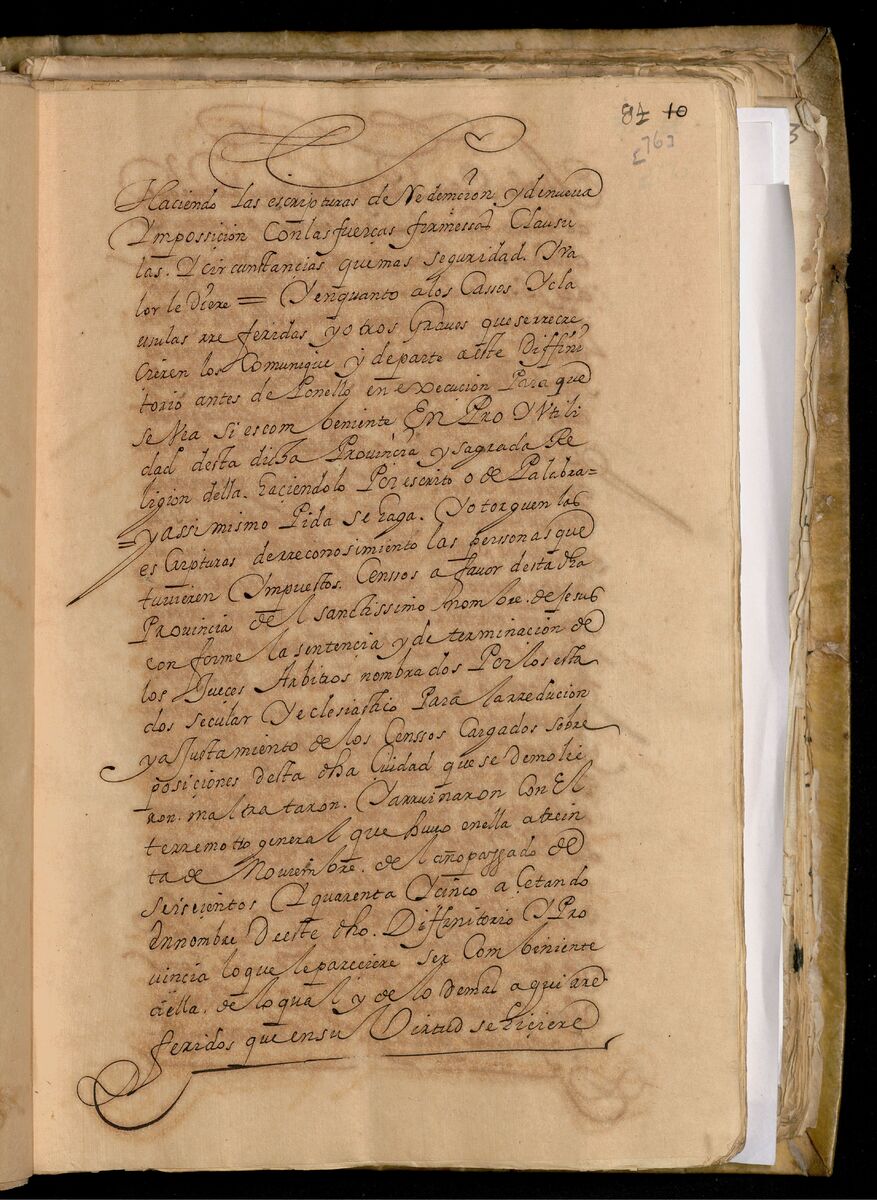 84 10
[76]
Haciendo las escripturas de Redempcion y de nueva
Ymposicion Con las fuerças firmessas Clausu
las. Y circunstancias que mas seguridad. Y va
lor le diere = Y en quanto a los Cassos Y cla
usulas rre feridas y otros Graves que se rrecre
cieren los Comunique y de parte a este Diffini
torio antes de Ponello en execucion Para que
se Vea si es com beniente En Pro Y Vtili
dad desta dicha Provincia y sagrada Re
ligion della. haciendolo Por escrito o de Palabra =
= y assi mismo Pida se haga. Y otorguen las
es Cripturas de rreconosimiento las personas que
tuvieren Ympuestos. Censsos a favor desta dha
Provincia del sanctissimo nombre. de Jesus
con forme la sentencia y de terminacion de
los Jueces Arbitros nombrados Por los esta
dos secular Y eclesiastico Para la rreducion
y a Justamiento de los Censsos Cargados sobre
posiciones desta dha Ciudad que se demolie
ron. mal tra taron. Y arruinaron Con El
terremotto general que huvo en ella a trein
ta de Noviembre. del año passado de
seiscientos Y quarenta Y cinco acetando
En nombre Deeste dho. Diffinitorio Y Pro
vincia lo que le pareciere ser Com beniente
a ella. de lo qual y de lo demas aqui rre
feridos que en su Virtud se hiciere